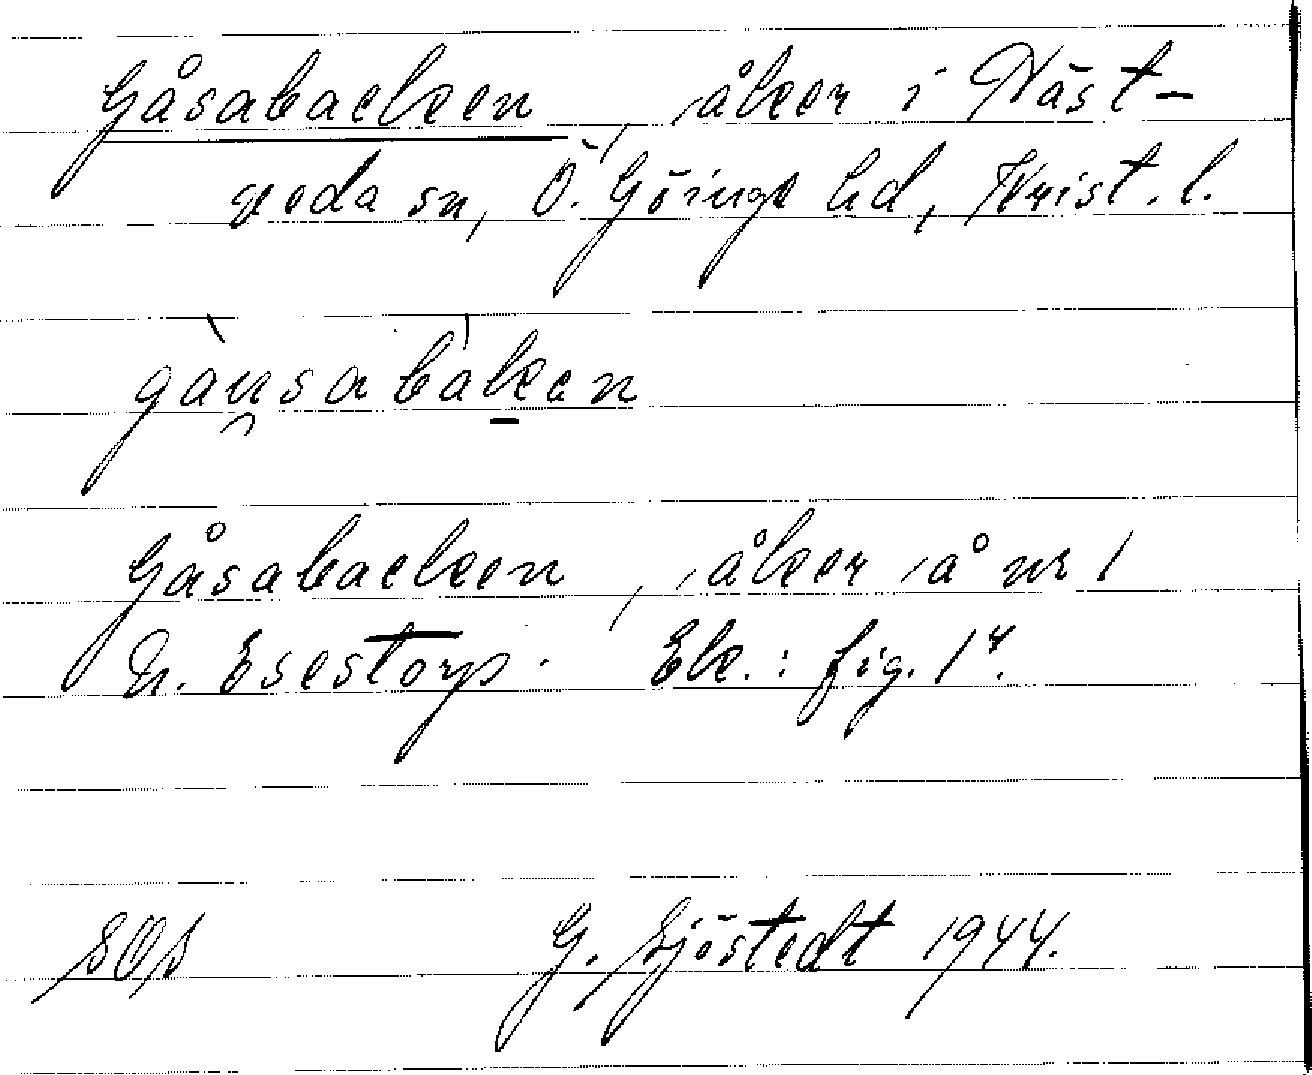 Gåsabacken, åker i Häst-
veda sn, Ö. Göinge hd, Krist. l.
gàu̯sabàk̠en
Gåsabacken, åker å nr 1
N. Esestorp. Ek.: fig. 14.
SOS G. Sjöstedt 1944.